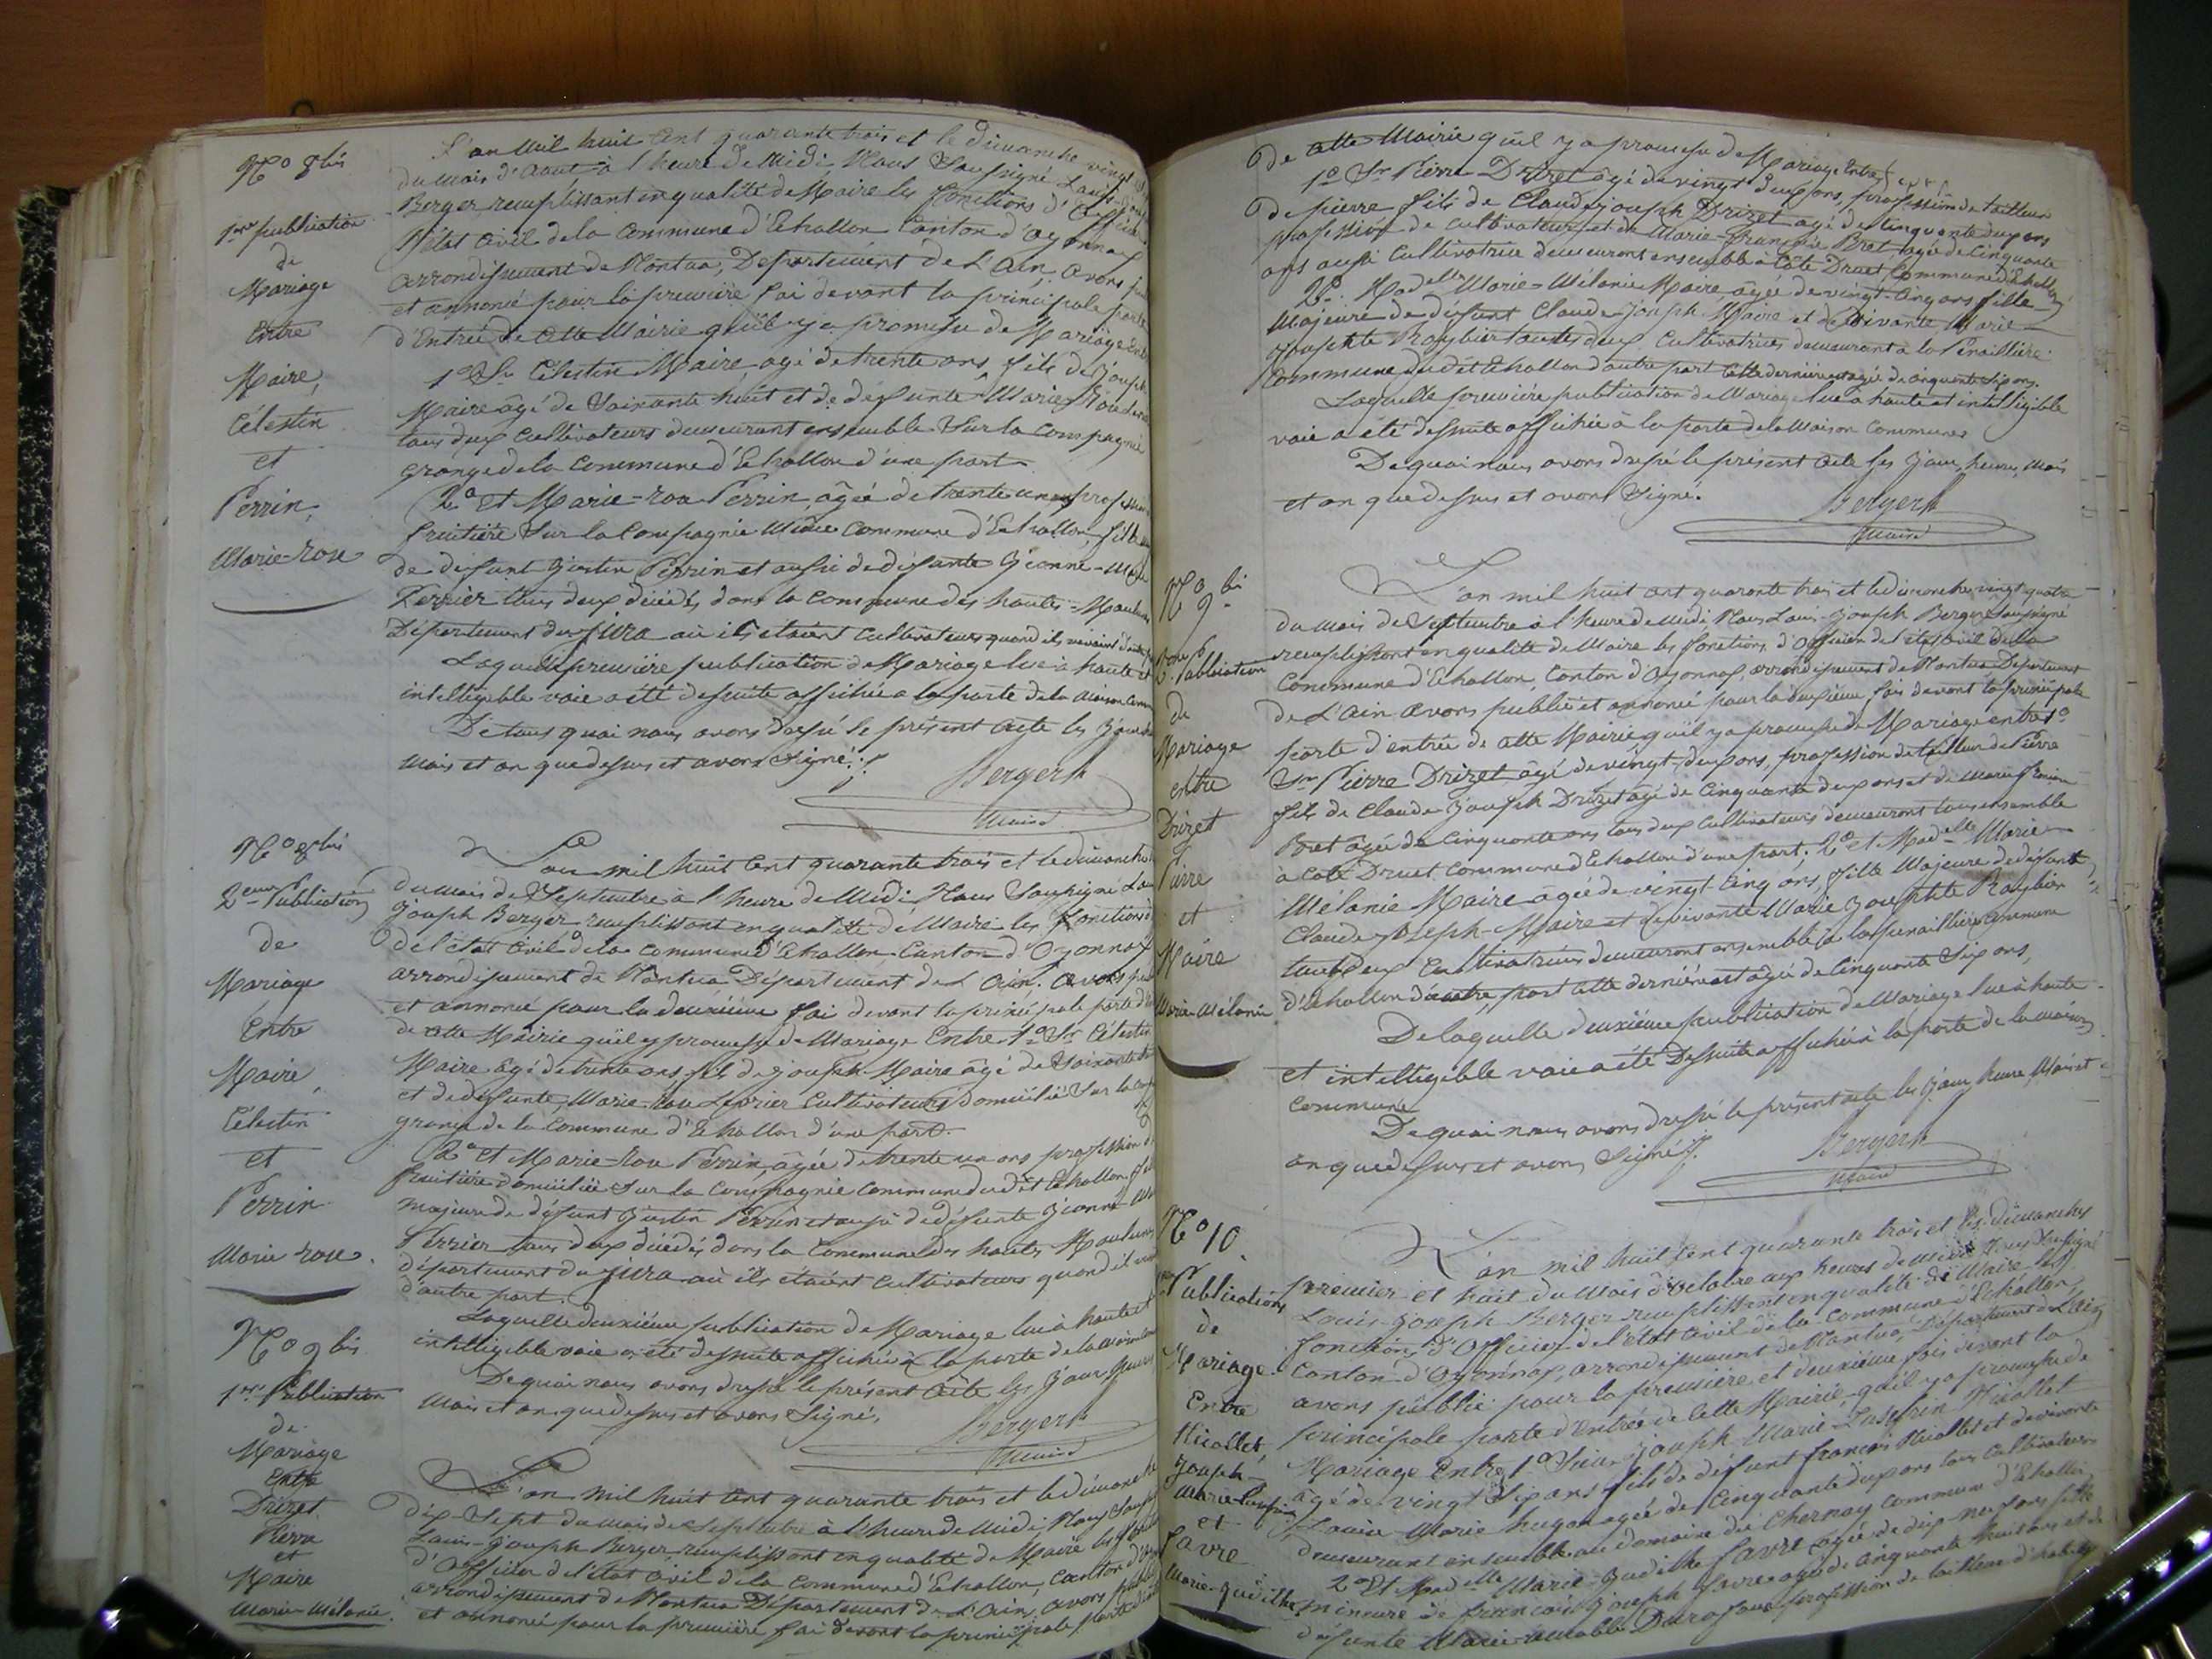 N° 8 bis
1ere publication
de
Mariage
Entre
Maire,
Célestin
et
Perrin,
Marie-rose
L'an mil huit cent quarante trois et le dimanche vingt
du mois d'Aout à l'heure de Midi, Nous Soussigné Louis
Berger remplissant en qualité de Maire les fonctions d'
l'état Civil de la Commune d'Echallon Canton d'Oyonnax
arrondissement de Nantua, Département de L'Ain, avons
et annoncé pour la première foi devant la principale porte
d'Entrée de cette Mairie qu'il y a promesse de Mariage
1° Sr Célestin Maire agé de trente ans fils de Joseph
Maire âgé de Soixante huit et de défunte Marie
tous deux Cultivateurs demeurant ensemble Sur la Compagnie
grange de la Commune d'Echallon d'une part
2° et Marie-rose Perrin, âgée de trente un ans
fruitière Sur la Compagnie Commune d'Echallon, fille
de défunt Justin Perrin et aussi de défunte Jeanne-
Perrier tous deux décédés dans la Commune des hautes-
Département du Jura où ils étaient cultivateurs quand ils vivaient
Laquelle première publication de Mariage lue à haute et
intelligible voie a été desuite affichée a la porte de la Maison
De tous quoi nous avons dressé le présent acte les Jour
mois et an que dessus et avons Signé.
Berger
Maire
N° 8 bis
2eme Publication
de
Mariage
Entre
Maire,
Célestin
et
Perrin
Marie rose.
L'an mil huit cent quarante trois et le dimanche
du mois de Septembre à l'heure de Midi Nous Soussigné
Joseph Berger remplissant en qualité de Maire les fonctions
de l'état Civil de la Commune d'Echallon Canton d'Oyonnax
arrondissement de Nantua Département de L'Ain, avons
et annoncé pour la deuxième foi devant la principale porte
de cette Mairie qu'il y promesse de Mariage Entre 1° Sr Célestin
Maire âgé de trente ans fils de Joseph Maire âgé de Soixante
et de défunte, Marie-rose Cultivateurs domicilié Sur la
grange de la Commune d'Echallon d'une part.
2° et Marie-rose Perrin, âgée de trente un ans profession
fruitière domiciliée Sur la Compagnie Commune du dit Echallon
majeure de défunt Justin Perrin et aussi de défunte Jeanne
Perrier tous deux décédés dans la Commune des hautes
département du Jura où ils étaient cultivateurs quand il
d'autre part.
Laquelle deuxième publication de Mariage lue à haute et
intelligible voie a été desuite affichée à la porte de la maison
De quoi nous avons dressé le présent Acte les Jour heures
Mois et an que dessus et avons Signé,
Berger
Maire
N° 9 bis
1ere Publication
de
Mariage
Entre
Drizet
Pierre
et
Maire
Marie-Mélanie.
L'an mil huit cent quarante trois et le dimanche
dix-Sept du mois de Septembre à l'heure de Midi, Nous
Louis-Joseph Berger remplissant en qualité de Maire les
d'Officier de l'état Civil de la Commune d'Echallon, Canton
arrondissement de Nantua Département de L'Ain, avons
et annoncé pour la première foi devant la principale porte
de cette Mairie qu'il y a promesse de Mariage Entre
1° Sr Pierre Drizet âgé de vingt deux ans, profession de tailleur
de pierre fils de Claude Joseph Drizet agé de Cinquante deux ans
profession de cultivateur et de Marie-françoise Bret agée de Cinquante
ans aussi Cultivatrice demeurant ensemble à Côte Druet Commune d'Echallon
2° Madelle Marie-Mélanie Maire, âgée de vingt-Cinq ans fille
Majeure de défunt Claude Joseph Maire et de vivante Marie
Josephte toutes deux Cultivatrices demeurant à la
Commune du dit Echallon d'autre part cette dernière est agée de Cinquante Six ans.
Laquelle première publication de Mariage lue à haute et intelligible
voie a été desuite affichée à la porte de la Maison Commune
De quoi nous avons dressé le présent Acte les Jour, heures, Mois
et an que dessus et avons Signé.
Berger
Maire
N° 9 bis
Publication
de
Mariage
entre
Drizet
Pierre
et
Maire
Marie-Mélanie
L'an mil huit cent quarante trois et le dimanche vingt quatre
du mois de Septembre à l'heure de Midi Nous Louis-Joseph Berger Soussigné
remplissant en qualité de Maire les fonctions d'Officier de l'état Civil de la
Commune d'Echallon, Canton d'Oyonnax, arrondissement de Nantua Département
de L'Ain avons publié et annoncé pour la deuxième fois devant la principale
porte d'entrée de cette Mairie qu'il y a promesse de Mariage entre 1°
Sr Pierre Drizet âgé de vingt-deux ans, profession de tailleur de Pierre
fils de Claude Joseph Drizet âgé de Cinquante deux ans et de Marie
Bret âgée de Cinquante ans tous deux Cultivateurs demeurant tous ensemble
à Côte Druet Commune d'Echallon d'une part. 2° et Madelle Marie
Mélanie Maire âgée de vingt Cinq ans, fille Majeure de défunt
Claude Joseph-Maire et de vivante Marie Josephte
toutes deux Cultivatrices demeurant ensemble à la Commune
d'Echallon d'autre part cette dernière est âgée de Cinquante Six ans,
De laquelle deuxième publication de Mariage lue à haute
et intelligible voie a été Desuite affichée à la porte de la maison
Commune
De quoi nous avons dressé le présent acte les jour heure, Mois et
an que dessus et avons Signé.
Berger
Maire
N° 10.
Publications
de
Mariage
Entre
Nicollet,
Joseph-
Marie
et
Favre
Marie-
L'an mil huit cent quarante trois et les dimanches
premier et huit du Mois d'Octobre aux heures de midi Nous Soussigné
Louis-Joseph Berger remplissant en qualité de Maire les
fonctions d'Officier de l'état Civil de la Commune d'Echallon,
Canton d'Oyonnax, arrondissement de Nantua, Département de L'Ain
avons publié pour la première et deuxième fois devant la
principale porte d'Entrée de Cette Mairie qu'il y a promesse de
Mariage Entre 1° Sieur Joseph Marie Nicollet
âgé de vingt Six ans fils de défunt françois Nicollet et de vivante
Louise Marie hugon agée de Cinquante deux ans tous Cultivateurs
demeurant ensemble au domaine du Chernay Commune d'Echallon
2° Et Madelle Marie- favre agée de dix-neuf ans fille
mineure de françois Joseph favre agé de Cinquante huit ans et de
défunte Marie profession de tailleur d'habits